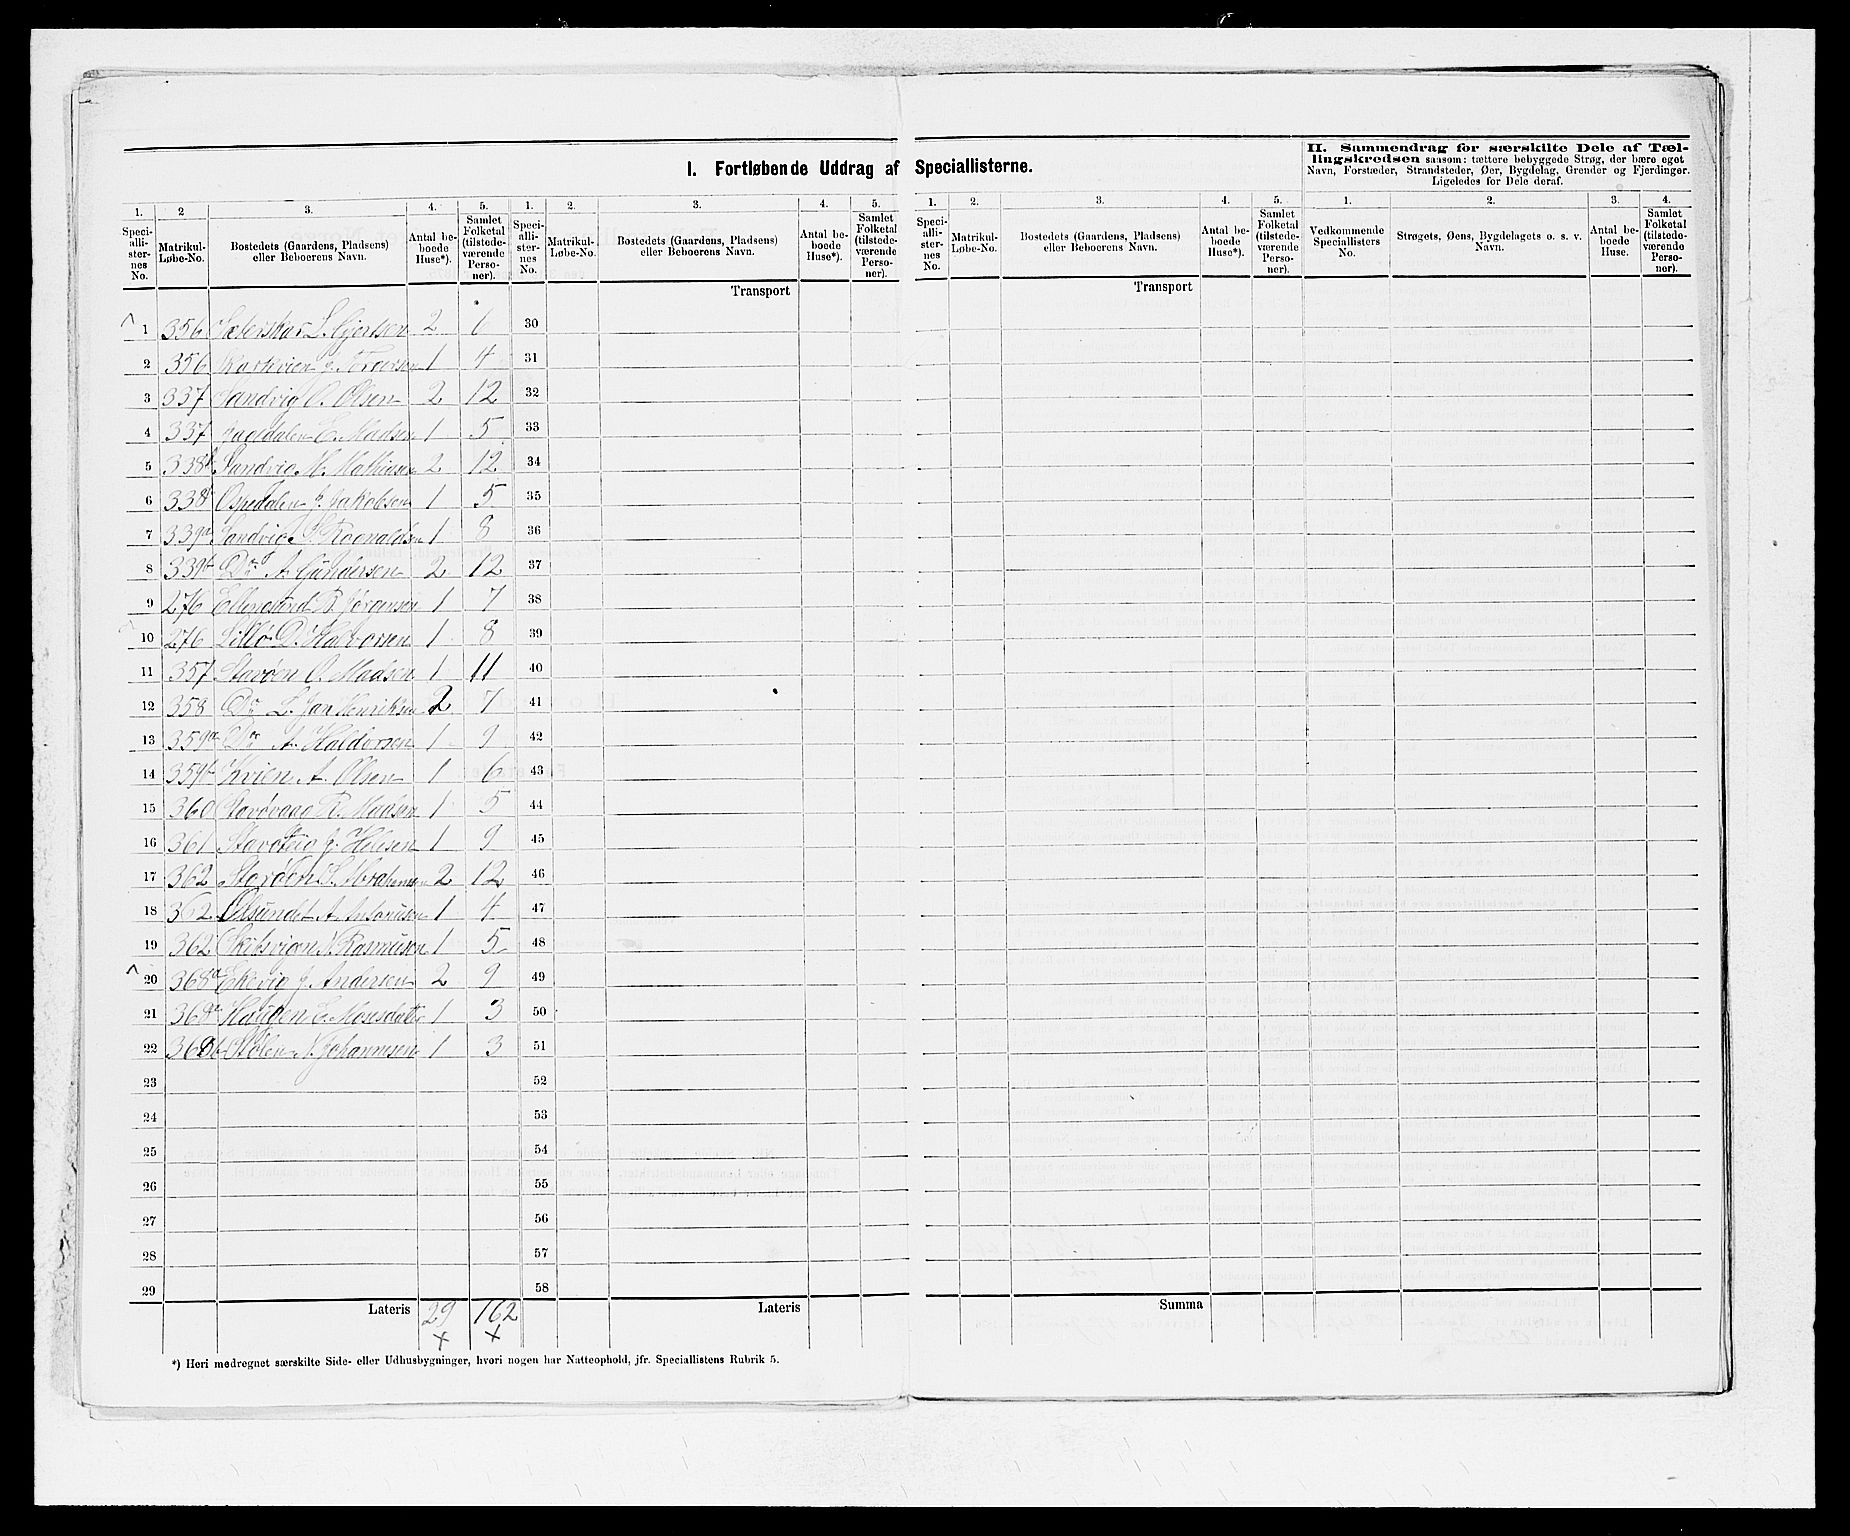 I. Fortløbende Uddrag af Speciallisterne.
II. Sammendrag for særskilte Dele af Tæl-
lingskredsen saasom: tættere bebyggede Strøg, der bære eget
Navn, Forstæder, Strandsteder, Øer, Bygdelag, Grender og Fjerdinger.
Ligeledes for Dele deraf.
1. 2 3. 4. 5. 1. 2. 3. 4. 5. 1. 2. 3. 4. 5. 1. 2. 3. 4.
Speciallisternes No. Matrikul-Løbe-No. Bostedets (Gaardens, Pladsens) eller Beboerens Navn. Antal beboede Huse*). Samlet Folketal (tilstedeværende Personer).
Speciallisternes No. Matrikul-Løbe-No. Bostedets (Gaardens, Pladsens) eller Beboerens Navn. Antal beboede Huse*). Samlet Folketal (tilstedeværende Personer).
Speciallisternes No. Matrikul-Løbe-No. Bostedets (Gaardens, Pladsens) eller Beboerens Navn. Antal beboede Huse*). Samlet Folketal (tilstedeværende Personer).
Vedkommende Speciallisters No. Strøgets, Øens, Bygdelagets o. s. v. Navn. Antal beboede Huse. Samlet Folketal (tilstedeværende Personer).
Transport Transport
1 356 L. Gjertsen 2 30
2 356 1 4 31
3 337 Sandvig O. Olsen 2 12 32
4 337 E. Madsen 1 5 33
5 338 Sandvig M. Mathiasen 2 12 34
6 338 Ospedalen J. Jakobsen 1 5 35
7 339a Sandvig Ragnaldsen 1 8 36
8 339b Do A. Gundersen 2 12 37
9 276 Ellingsund R. Jørgensen 1 7 38
10 276 Lillø D. Halvorsen 1 8 39
11 357 Storøen O. Madsen 1 11 40
12 358 Do L. Jan Henriksen 2 7 41
13 359a Do A. Haldorsen 1 9 42
14 359b Kvien A. Olsen 1 6 43
15 360 Storøvaag R. Madsen 1 5 44
16 361 J. 1 9 45
17 362 Storøen S. Abrahamsen 2 12 46
18 362 A. Antonisen 1 4 47
19 362 N. Rasmusen 1 5 48
20 368a Ekevig J. Andersen 2 9 49
21 368a Haugen E. Monsdatter 1 3 50
22 368b Stølen N. Johannesen 1 3 51
23 52
24 53
25 54
26 55
27 56
28 57
29 58
Lateris 29 162 Lateris Summa
x x
*) Heri medregnet særskilte Side- eller Udhusbygninger, hvori nogen har Natteophold, jfr. Speciallistens Rubrik 5.